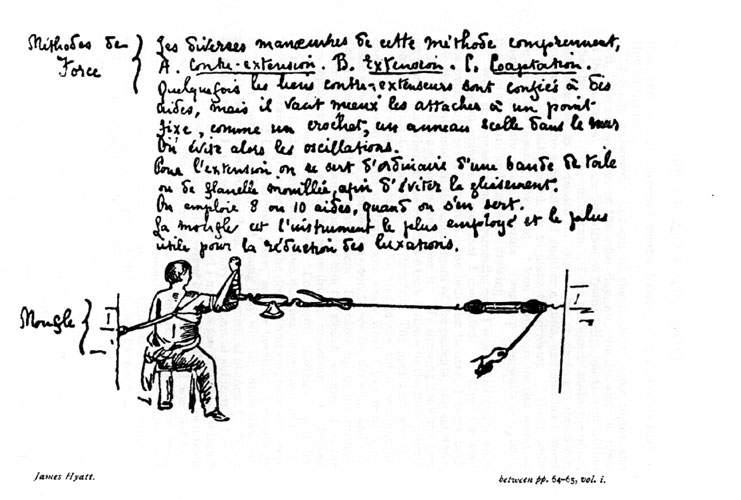 Méthodes de
Force
Les diverses manœuvres de cette méthode comprennent,
A. Contre-extension. B. Extension. C. Coaptation.
Quelquefois les liens contre-extenseurs sont confiés à des
aides, mais il vaut mieux les attacher à un point
fixe, comme un crochet, un anneau scellé dans le mur
On évite alors les oscillations.
Pour l'extension, on se sert d'ordinaire d'une bande de toile
ou de flanelle mouillée, afin d'éviter le glissement.
On emploie 8 ou 10 aides, quand on s'en sert.
La moufle est l'instrument le plus employé et le plus
utile pour la réduction des luxations.
Moufle
James Hyatt.
between pp. 64-65, vol. i.